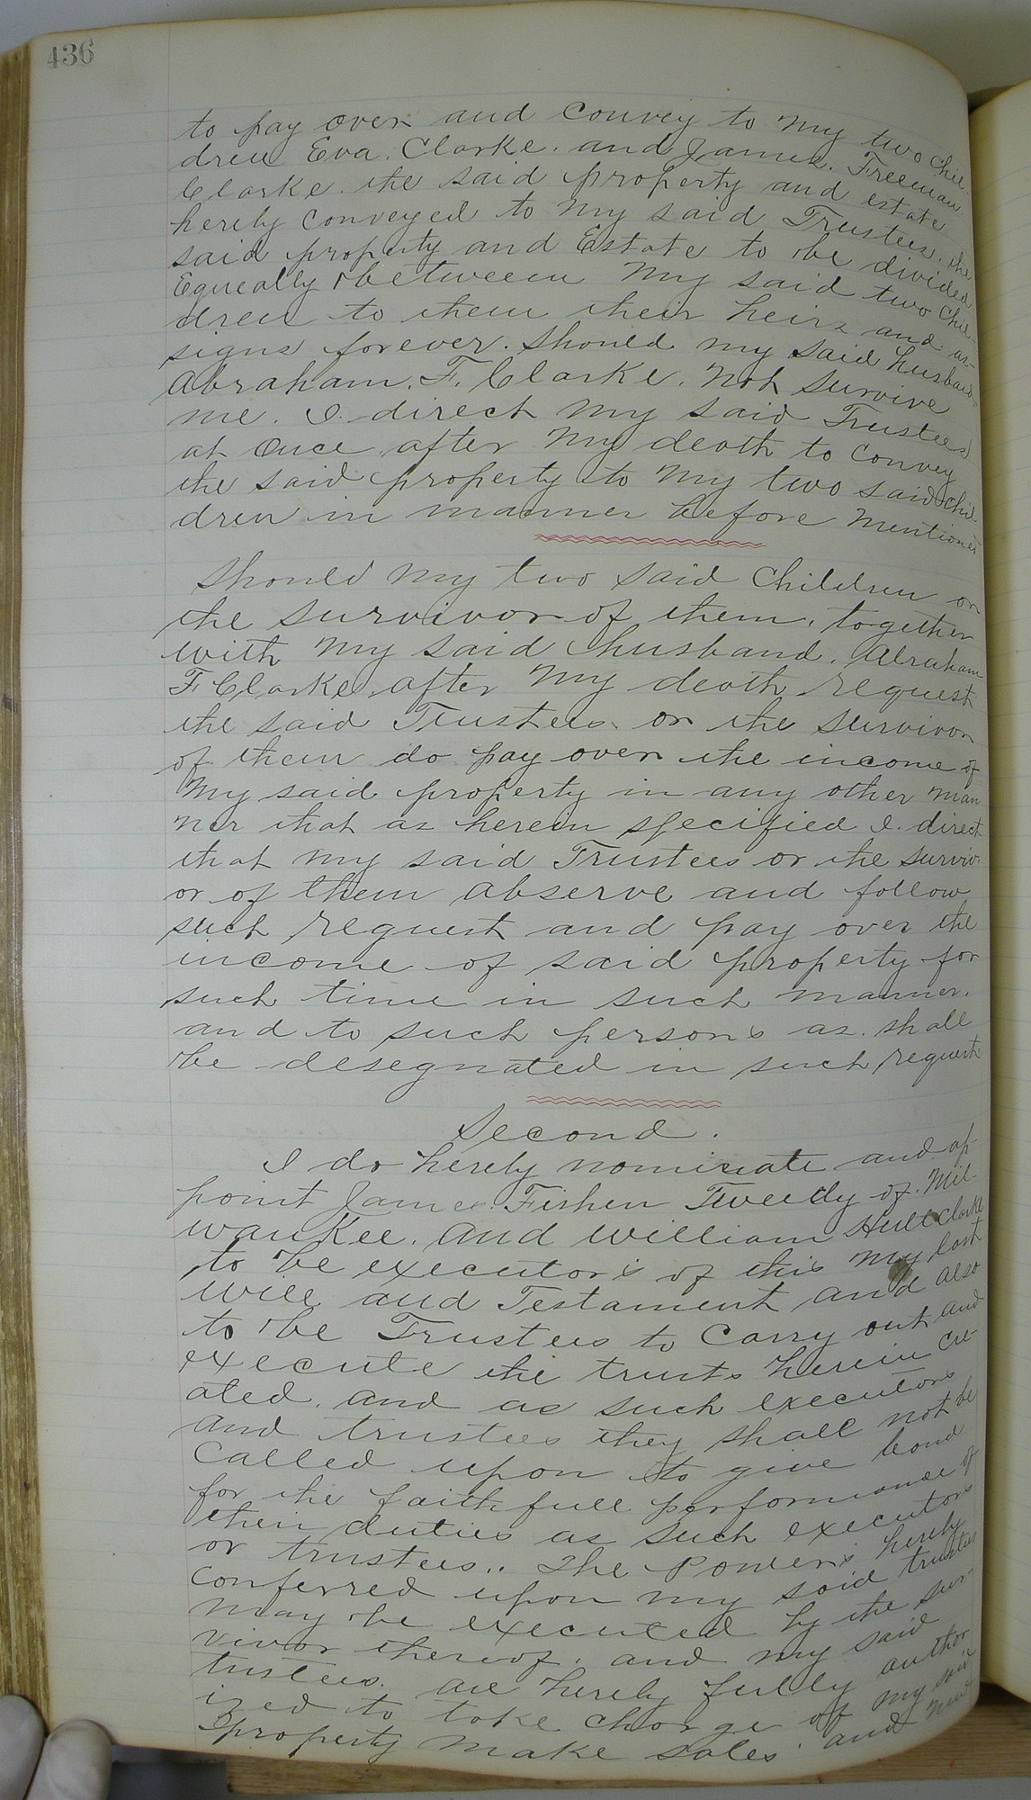 436
to pay over and convey to my two chil-
dren Eva. Clarke. and James. Freeman
Clarke. the said property and estate
hereby conveyed to my said Trustees. the
said property and Estate to be divided
Equeally between my said two chil-
dren to them their heirs and as-
signs forever. Should my said husband
Abraham. F. Clarke. not survive
me. I direct my said Trustees
at once after my death to convey
the said property to my two said chil-
dren in manner before mentioned
Should my two said children or
the survivor of them, together
with my said husband. Abraham
F Clarke, after my death request
the said Trustees or the survivor
of them do pay over the income of
my said property in any other man
ner that as herein specified I direct
that my said Trustees or the surviv-
or of them observe and follow
such request and pay over the
income of said property for
such time in such manner.
and to such persons as shall
be desegnated in such request
Second.
I do hereby nominate and ap-
point James. Fisher Tweedy of. Mil-
waukee. and William Hull Clarke
to be executors of this my last
will and Testament and also
to be Trustees to carry out and
execute the trusts herein cre-
ated. and as such executors
and trustees they shall not be
called upon to give bond
for the faithfull performance of
their duties as such executors
or trustees.. The Powers hereby
conferred upon my said trustees
may be executed by the sur-
vivor thereof. and my said
tustees. are hereby fully author
ized to take charge of my said
property make sales and